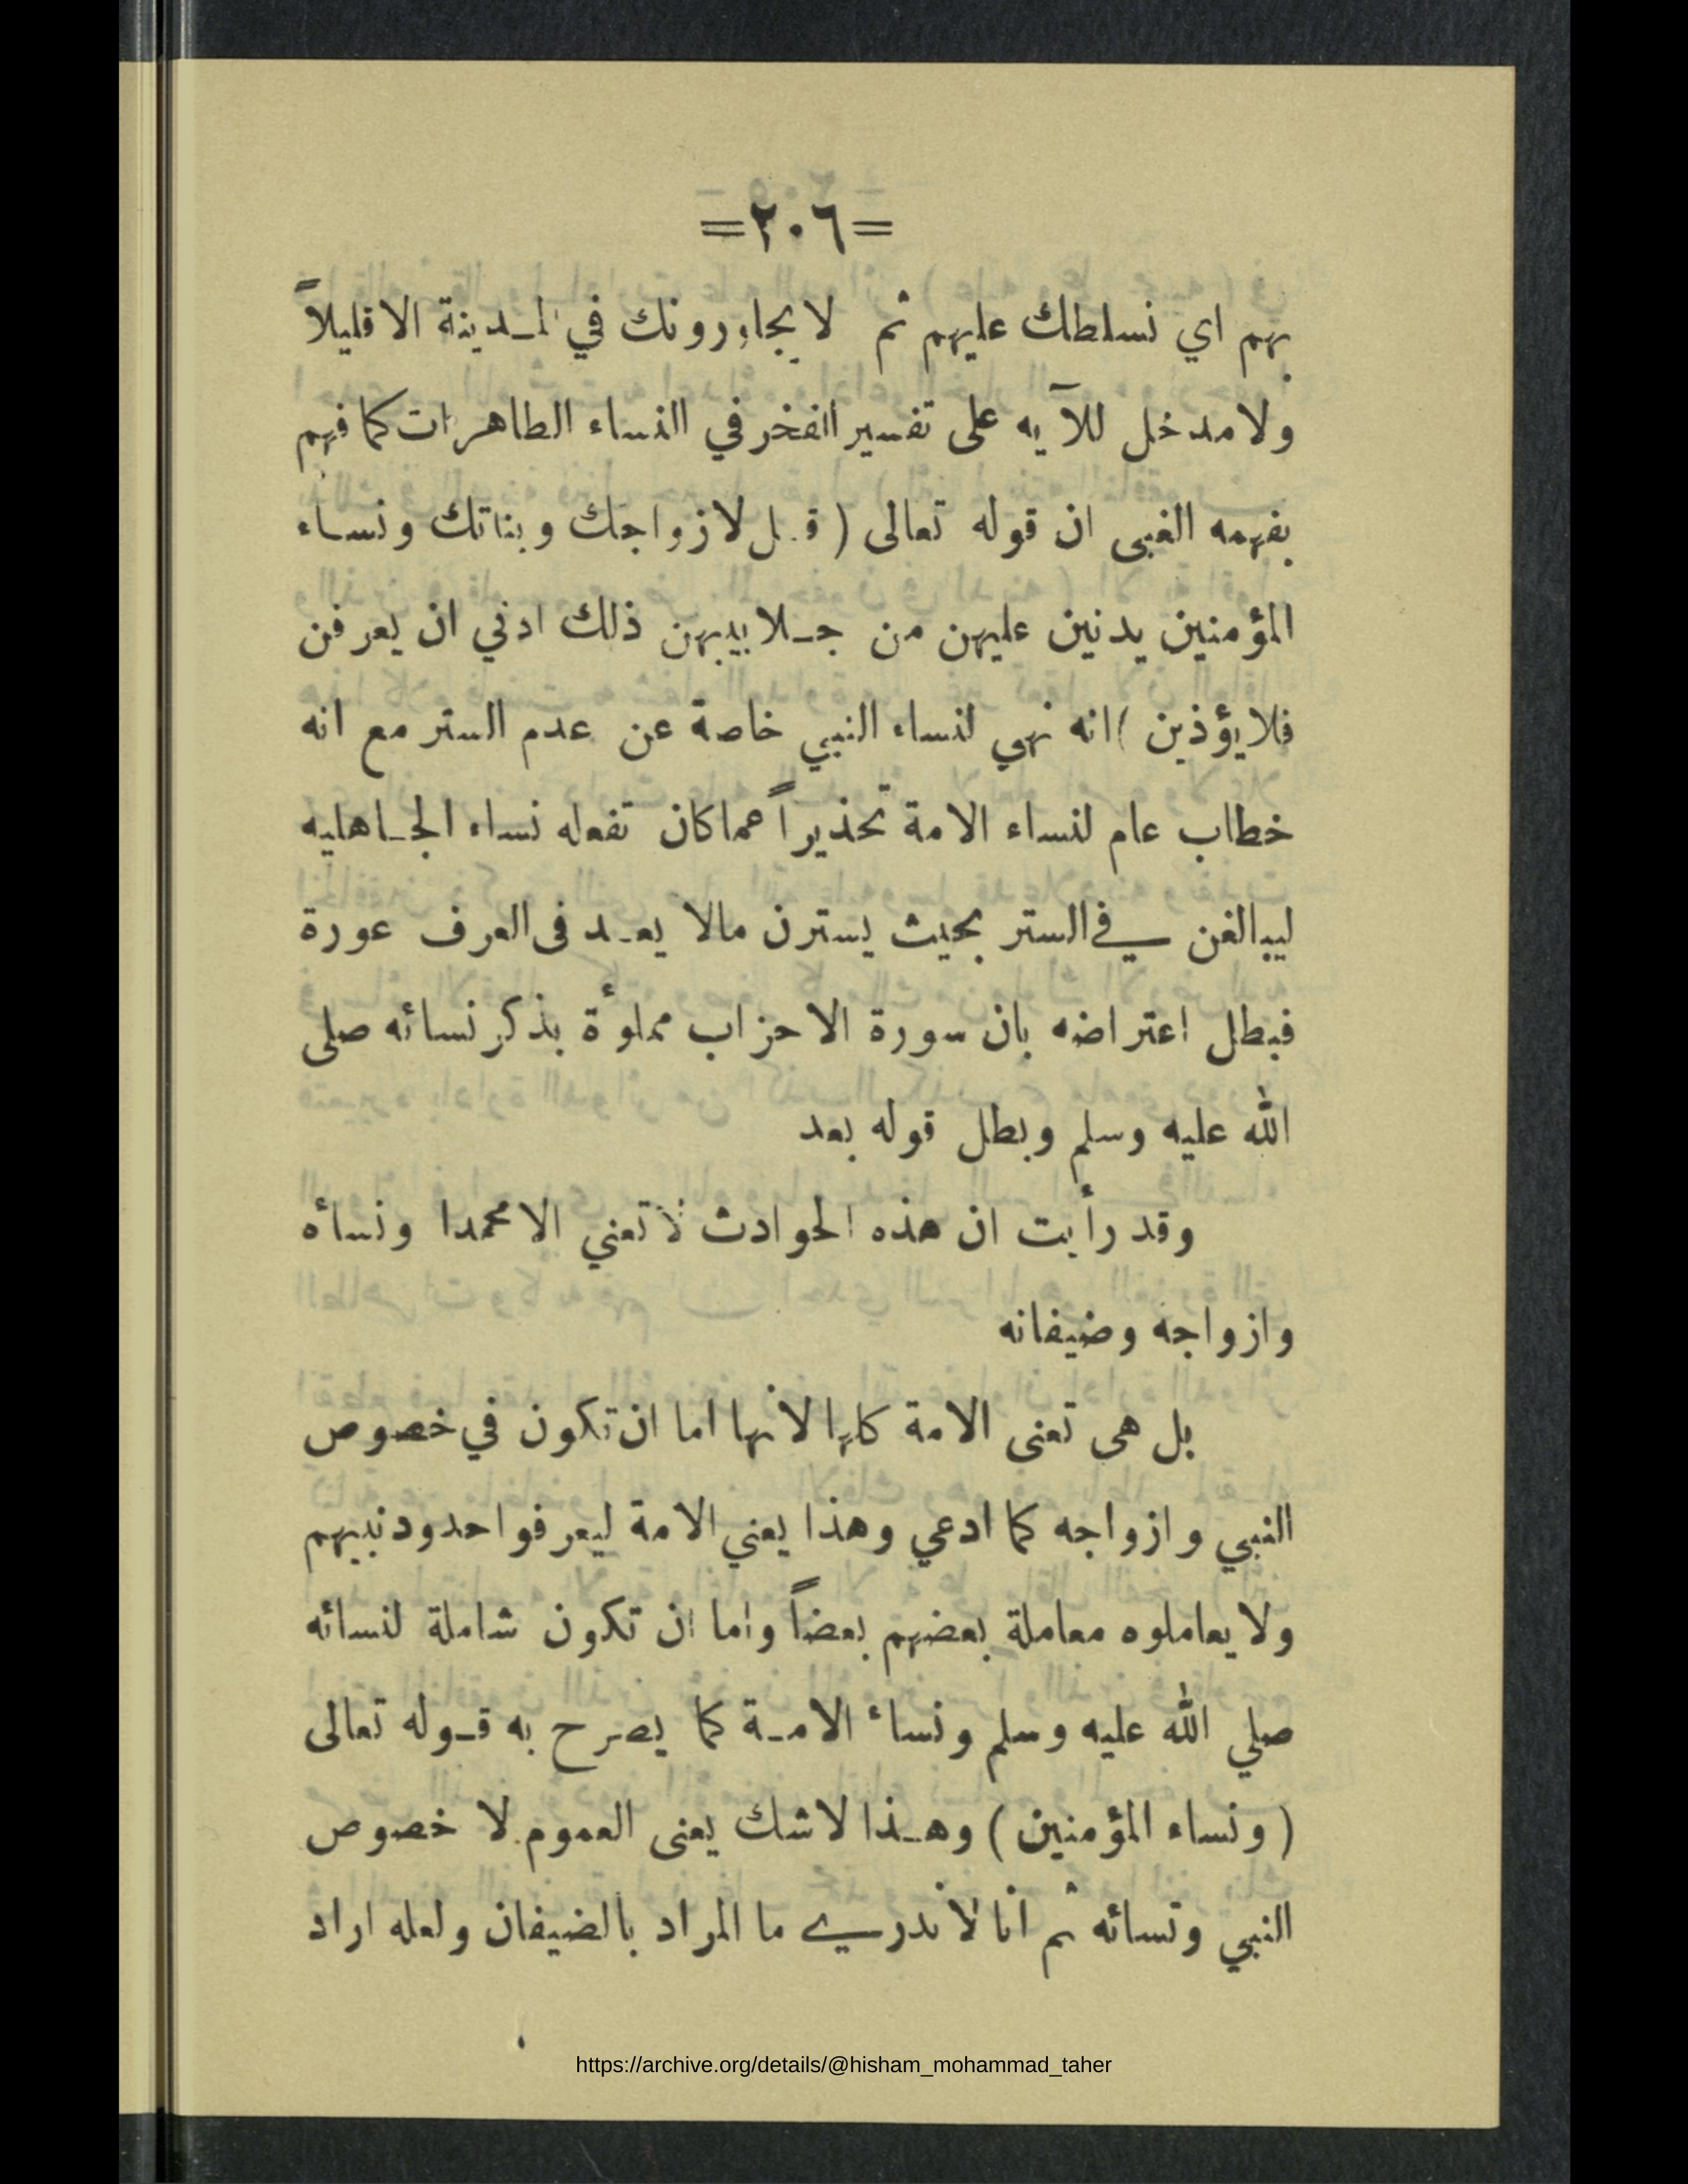 =٢٠٦=
بهم اي نسلطك عليهم ثم لا يجاورونك في المدينة الا قليلاً
ولا مدخل للآيه على تفسير الفخر في النساء الطاهرات كما فهم
بفهمه الغبى ان قوله تعالى ( قل لازواجك وبناتك ونساء
المؤمنين يدنين عليهن من جلابيبهن ذلك ادني ان يعرفن
فلا يؤذين ) انه نهي لنساء النبي خاصة عن عدم الستر مع انه
خطاب عام لنساء الامة تحذيراً عما كان تفعله نساء الجاهليه
ليبالغن في الستر بحيث يسترن مالا يعد فى العرف عورة
فبطل اعتراضه بان سورة الاحزاب مملوأة بذكر نسائه صلى
الله عليه وسلم وبطل قوله بعد
وقد رأيت ان هذه الحوادث لا تعني الا محمدا ونسأه
وازواجه وضيفانه
بل هى تعنى الامة كلها لانها اما ان تكون في خصوص
النبي وازواجه كما ادعي وهذا يعني الامة ليعرفوا حدود نبيهم
ولا يعاملوه معاملة بعضهم بعضاً واما ان تكون شاملة لنسائه
صلي الله عليه وسلم ونساء الامة كما يصرح به قوله تعالى
( ونساء المؤمنين ) وهذا لاشك يعنى العموم لا خصوص
النبي ونسائه ثم انا لا ندري ما المراد بالضيفان ولعله اراد
https://archive.org/details/@hisham_mohammad_taher